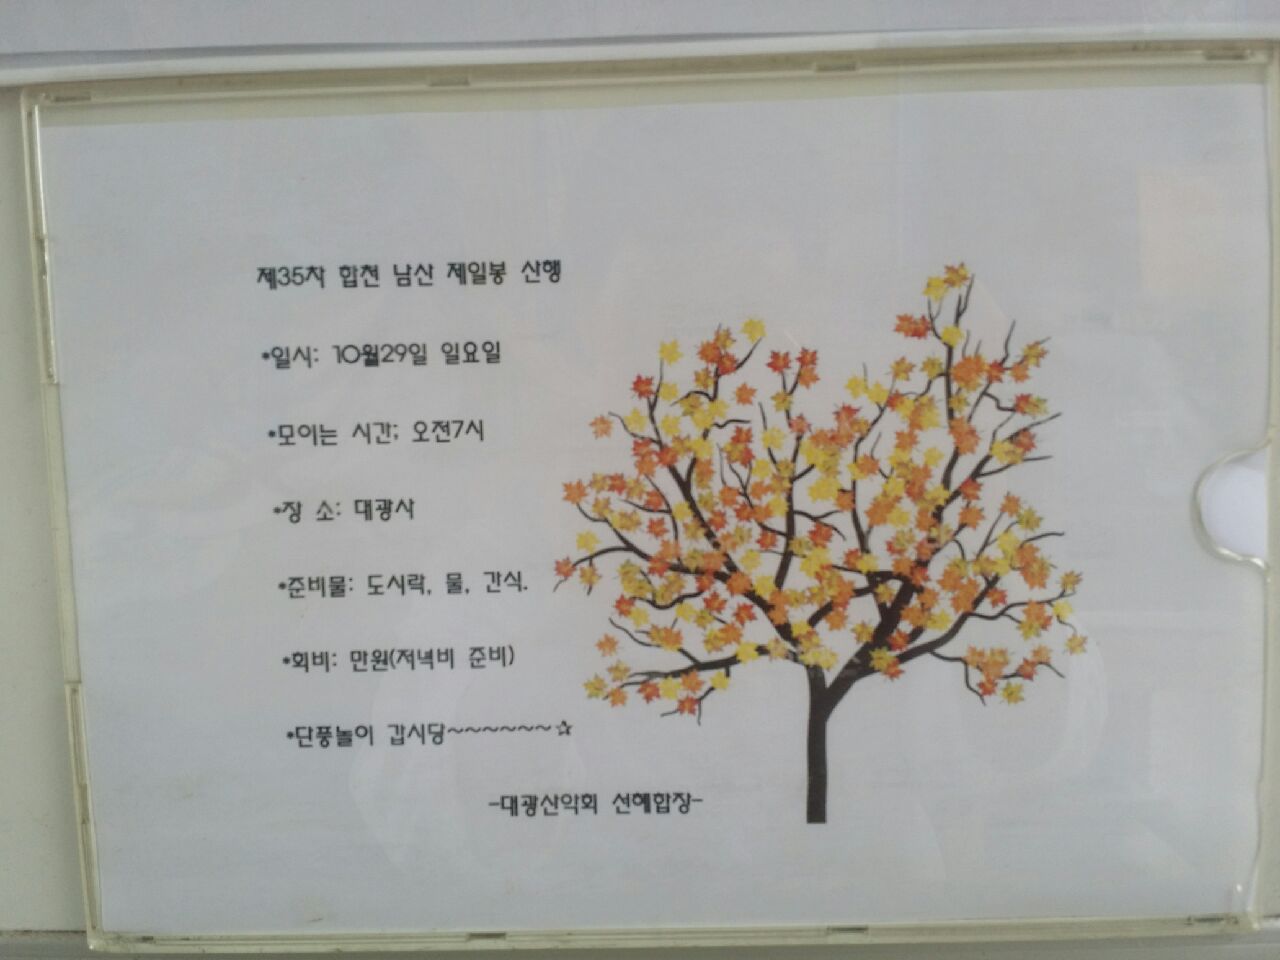 제35차 합천 남산 제일봉 산행
•일시: 10월29일 일요일
•모이는 시간; 오전7시
•장 소: 대광사
•준비물: 도시락, 물, 간식.
•회비: 만원(저녁비 준비)
•단풍놀이 갑시당~~~~~~~☆
-대광산악회 선혜합장-